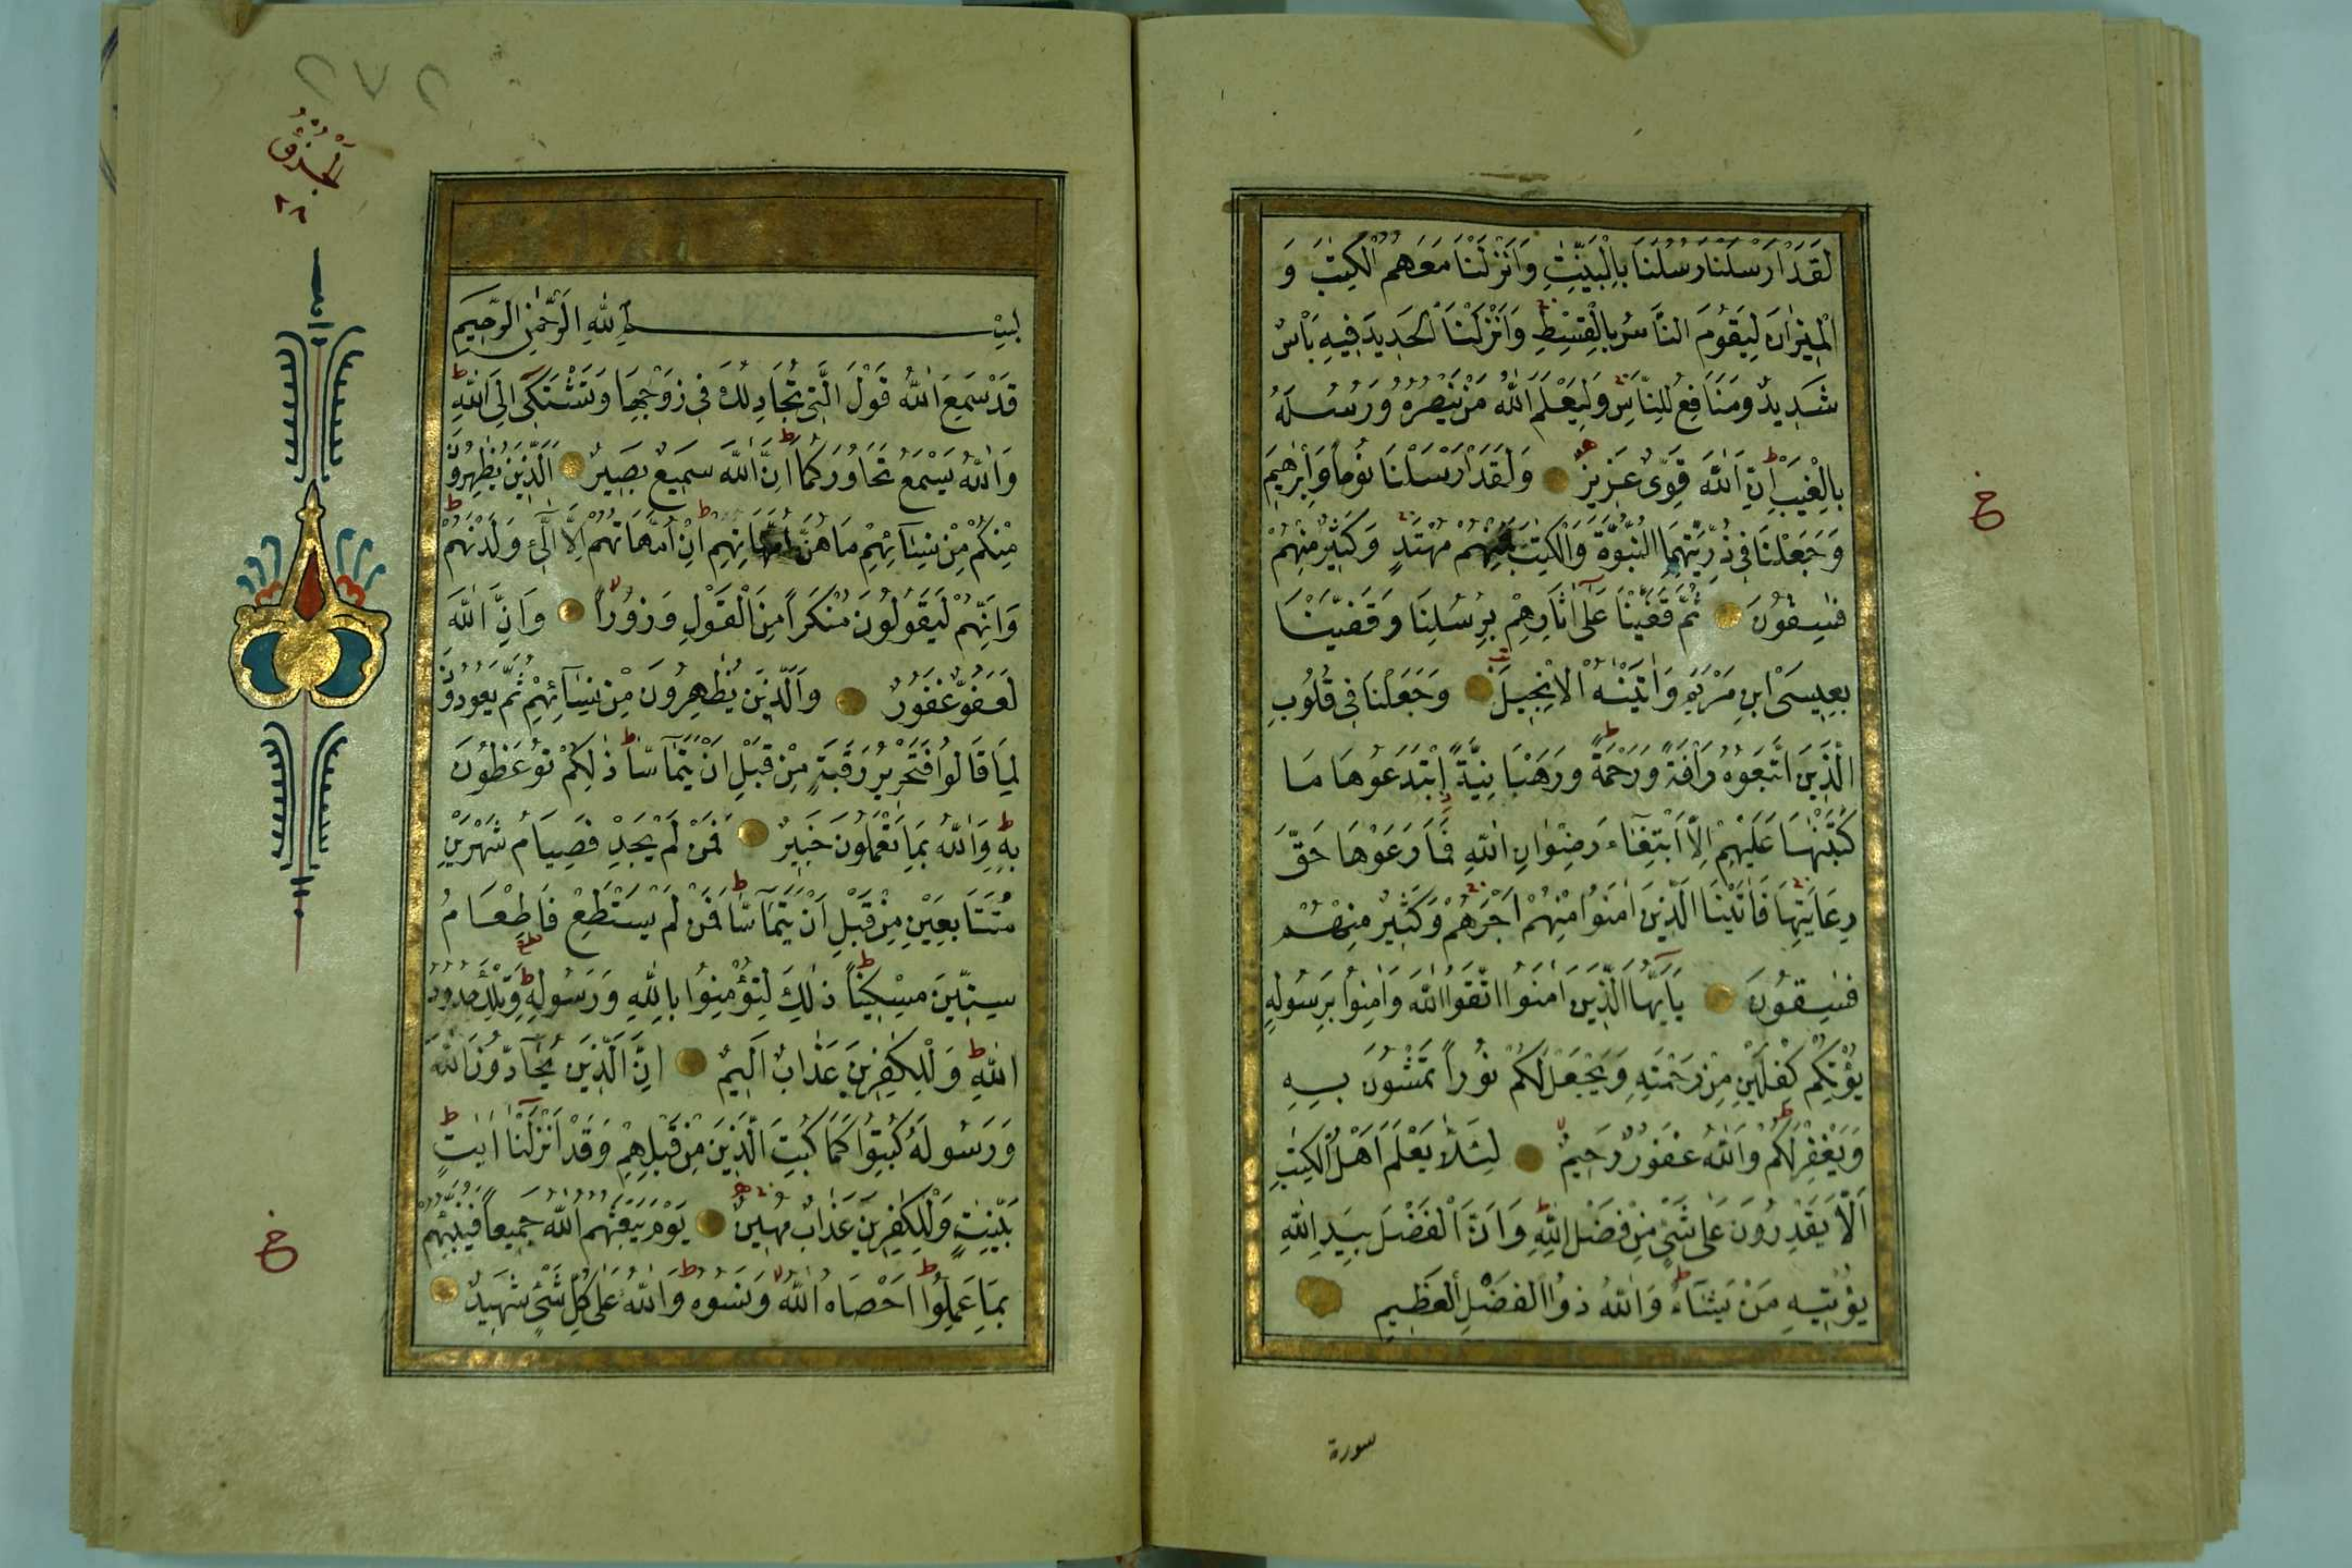 لَقَدْ اَرْسَلْنَا رُسُلَنَا بِالْبَيِّنٰتِ وَاَنْزَلْنَا مَعَهُمُ الْكِتٰبَ وَ
الْمِيزَانَ لِيَقُومَ النَّاسُ بِالْقِسْطِ وَاَنْزَلْنَا الْحَدِيدَ فِيهِ بَأْسٌ
شَدِيدٌ وَمَنَافِعُ لِلنَّاسِ وَلِيَعْلَمَ اللّٰهُ مَنْ يَنْصُرُهُ وَرُسُلَهُ
بِالْغَيْبِ اِنَّ اللّٰهَ قَوِيٌّ عَزِيزٌ وَلَقَدْ اَرْسَلْنَا نُوحاً وَاِبْرٰهِيمَ
وَجَعَلْنَا فِي ذُرِّيَّتِهِمَا النُّبُوَّةَ وَالْكِتٰبَ فَمِنْهُمْ مُهْتَدٍ وَكَثِيرٌ مِنْهُمْ
فٰسِقُونَ ثُمَّ قَفَّيْنَا عَلٰى اٰثَارِهِمْ بِرُسُلِنَا وَقَفَّيْنَا
بِعِيسَى ابْنِ مَرْيَمَ وَاٰتَيْنٰهُ الْاِنْجِيلَ وَجَعَلْنَا فِي قُلُوبِ
الَّذِينَ اتَّبَعُوهُ رَاْفَةً وَرَحْمَةً وَرَهْبَانِيَّةً اِبْتَدَعُوهَا مَا
كَتَبْنٰهَا عَلَيْهِمْ اِلَّا ابْتِغَاءَ رِضْوَانِ اللّٰهِ فَمَا رَعَوْهَا حَقَّ
رِعَايَتِهَا فَاٰتَيْنَا الَّذِينَ اٰمَنُوا مِنْهُمْ اَجْرَهُمْ وَكَثِيرٌ مِنْهُمْ
فٰسِقُونَ يَا اَيُّهَا الَّذِينَ اٰمَنُوا اتَّقُوا اللّٰهَ وَاٰمِنُوا بِرَسُولِهِ
يُؤْتِكُمْ كِفْلَيْنِ مِنْ رَحْمَتِهِ وَيَجْعَلْ لَكُمْ نُوراً تَمْشُونَ بِهِ
وَيَغْفِرْ لَكُمْ وَاللّٰهُ غَفُورٌ رَحِيمٌ لِئَلَّا يَعْلَمَ اَهْلُ الْكِتٰبِ
اَلَّا يَقْدِرُونَ عَلٰى شَيْءٍ مِنْ فَضْلِ اللّٰهِ وَاَنَّ الْفَضْلَ بِيَدِ اللّٰهِ
يُؤْتِيهِ مَنْ يَشَاءُ وَاللّٰهُ ذُوا الْفَضْلِ الْعَظِيمِ
سورة
خ
٢٧٢
الْجُزْؤُ
٢٨
بِسْمِ اللّٰهِ الرَّحْمٰنِ الرَّحِيمِ
قَدْ سَمِعَ اللّٰهُ قَوْلَ الَّتِي تُجَادِلُكَ فِي زَوْجِهَا وَتَشْتَكِي اِلَى اللّٰهِ
وَاللّٰهُ يَسْمَعُ تَحَاوُرَكُمَا اِنَّ اللّٰهَ سَمِيعٌ بَصِيرٌ اَلَّذِينَ يُظٰهِرُونَ
مِنْكُمْ مِنْ نِسَائِهِمْ مَا هُنَّ اُمَّهَاتِهِمْ اِنْ اُمَّهَاتُهُمْ اِلَّا الّٰئِ وَلَدْنَهُمْ
وَاِنَّهُمْ لَيَقُولُونَ مُنْكَراً مِنَ الْقَوْلِ وَزُوراً وَاِنَّ اللّٰهَ
لَعَفُوٌّ غَفُورٌ وَالَّذِينَ يُظٰهِرُونَ مِنْ نِسَائِهِمْ ثُمَّ يَعُودُونَ
لِمَا قَالُوا فَتَحْرِيرُ رَقَبَةٍ مِنْ قَبْلِ اَنْ يَتَمَاسَّا ذٰلِكُمْ تُوعَظُونَ
بِهِ وَاللّٰهُ بِمَا تَعْمَلُونَ خَبِيرٌ فَمَنْ لَمْ يَجِدْ فَصِيَامُ شَهْرَيْنِ
مُتَتَابِعَيْنِ مِنْ قَبْلِ اَنْ يَتَمَاسَّا فَمَنْ لَمْ يَسْتَطِعْ فَاِطْعَامُ
سِتِّينَ مِسْكِيناً ذٰلِكَ لِتُؤْمِنُوا بِاللّٰهِ وَرَسُولِهِ وَتِلْكَ حُدُودُ
اللّٰهِ وَلِلْكٰفِرِينَ عَذَابٌ اَلِيمٌ اِنَّ الَّذِينَ يُحَادُّونَ اللّٰهَ
وَرَسُولَهُ كُبِتُوا كَمَا كُبِتَ الَّذِينَ مِنْ قَبْلِهِمْ وَقَدْ اَنْزَلْنَا اٰيَاتٍ
بَيِّنٰتٍ وَلِلْكٰفِرِينَ عَذَابٌ مُهِينٌ يَوْمَ يَبْعَثُهُمُ اللّٰهُ جَمِيعاً فَيُنَبِّئُهُمْ
بِمَا عَمِلُوا اَحْصَاهُ اللّٰهُ وَنَسُوهُ وَاللّٰهُ عَلٰى كُلِّ شَيْءٍ شَهِيدٌ
خ